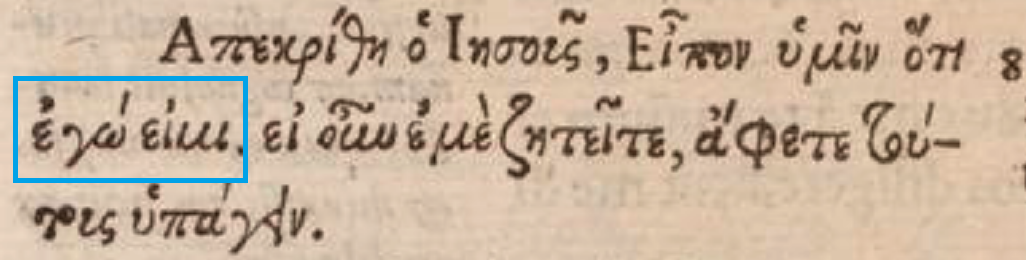 Ἀπεκρίθη ὁ Ἰησοῦς, Εἶπον ὑμῖν ὅτι 8
ἐγώ εἰμι. εἰ οὖν ἐμὲ ζητεῖτε, ἄφετε τού-
τους ὑπάγειν.